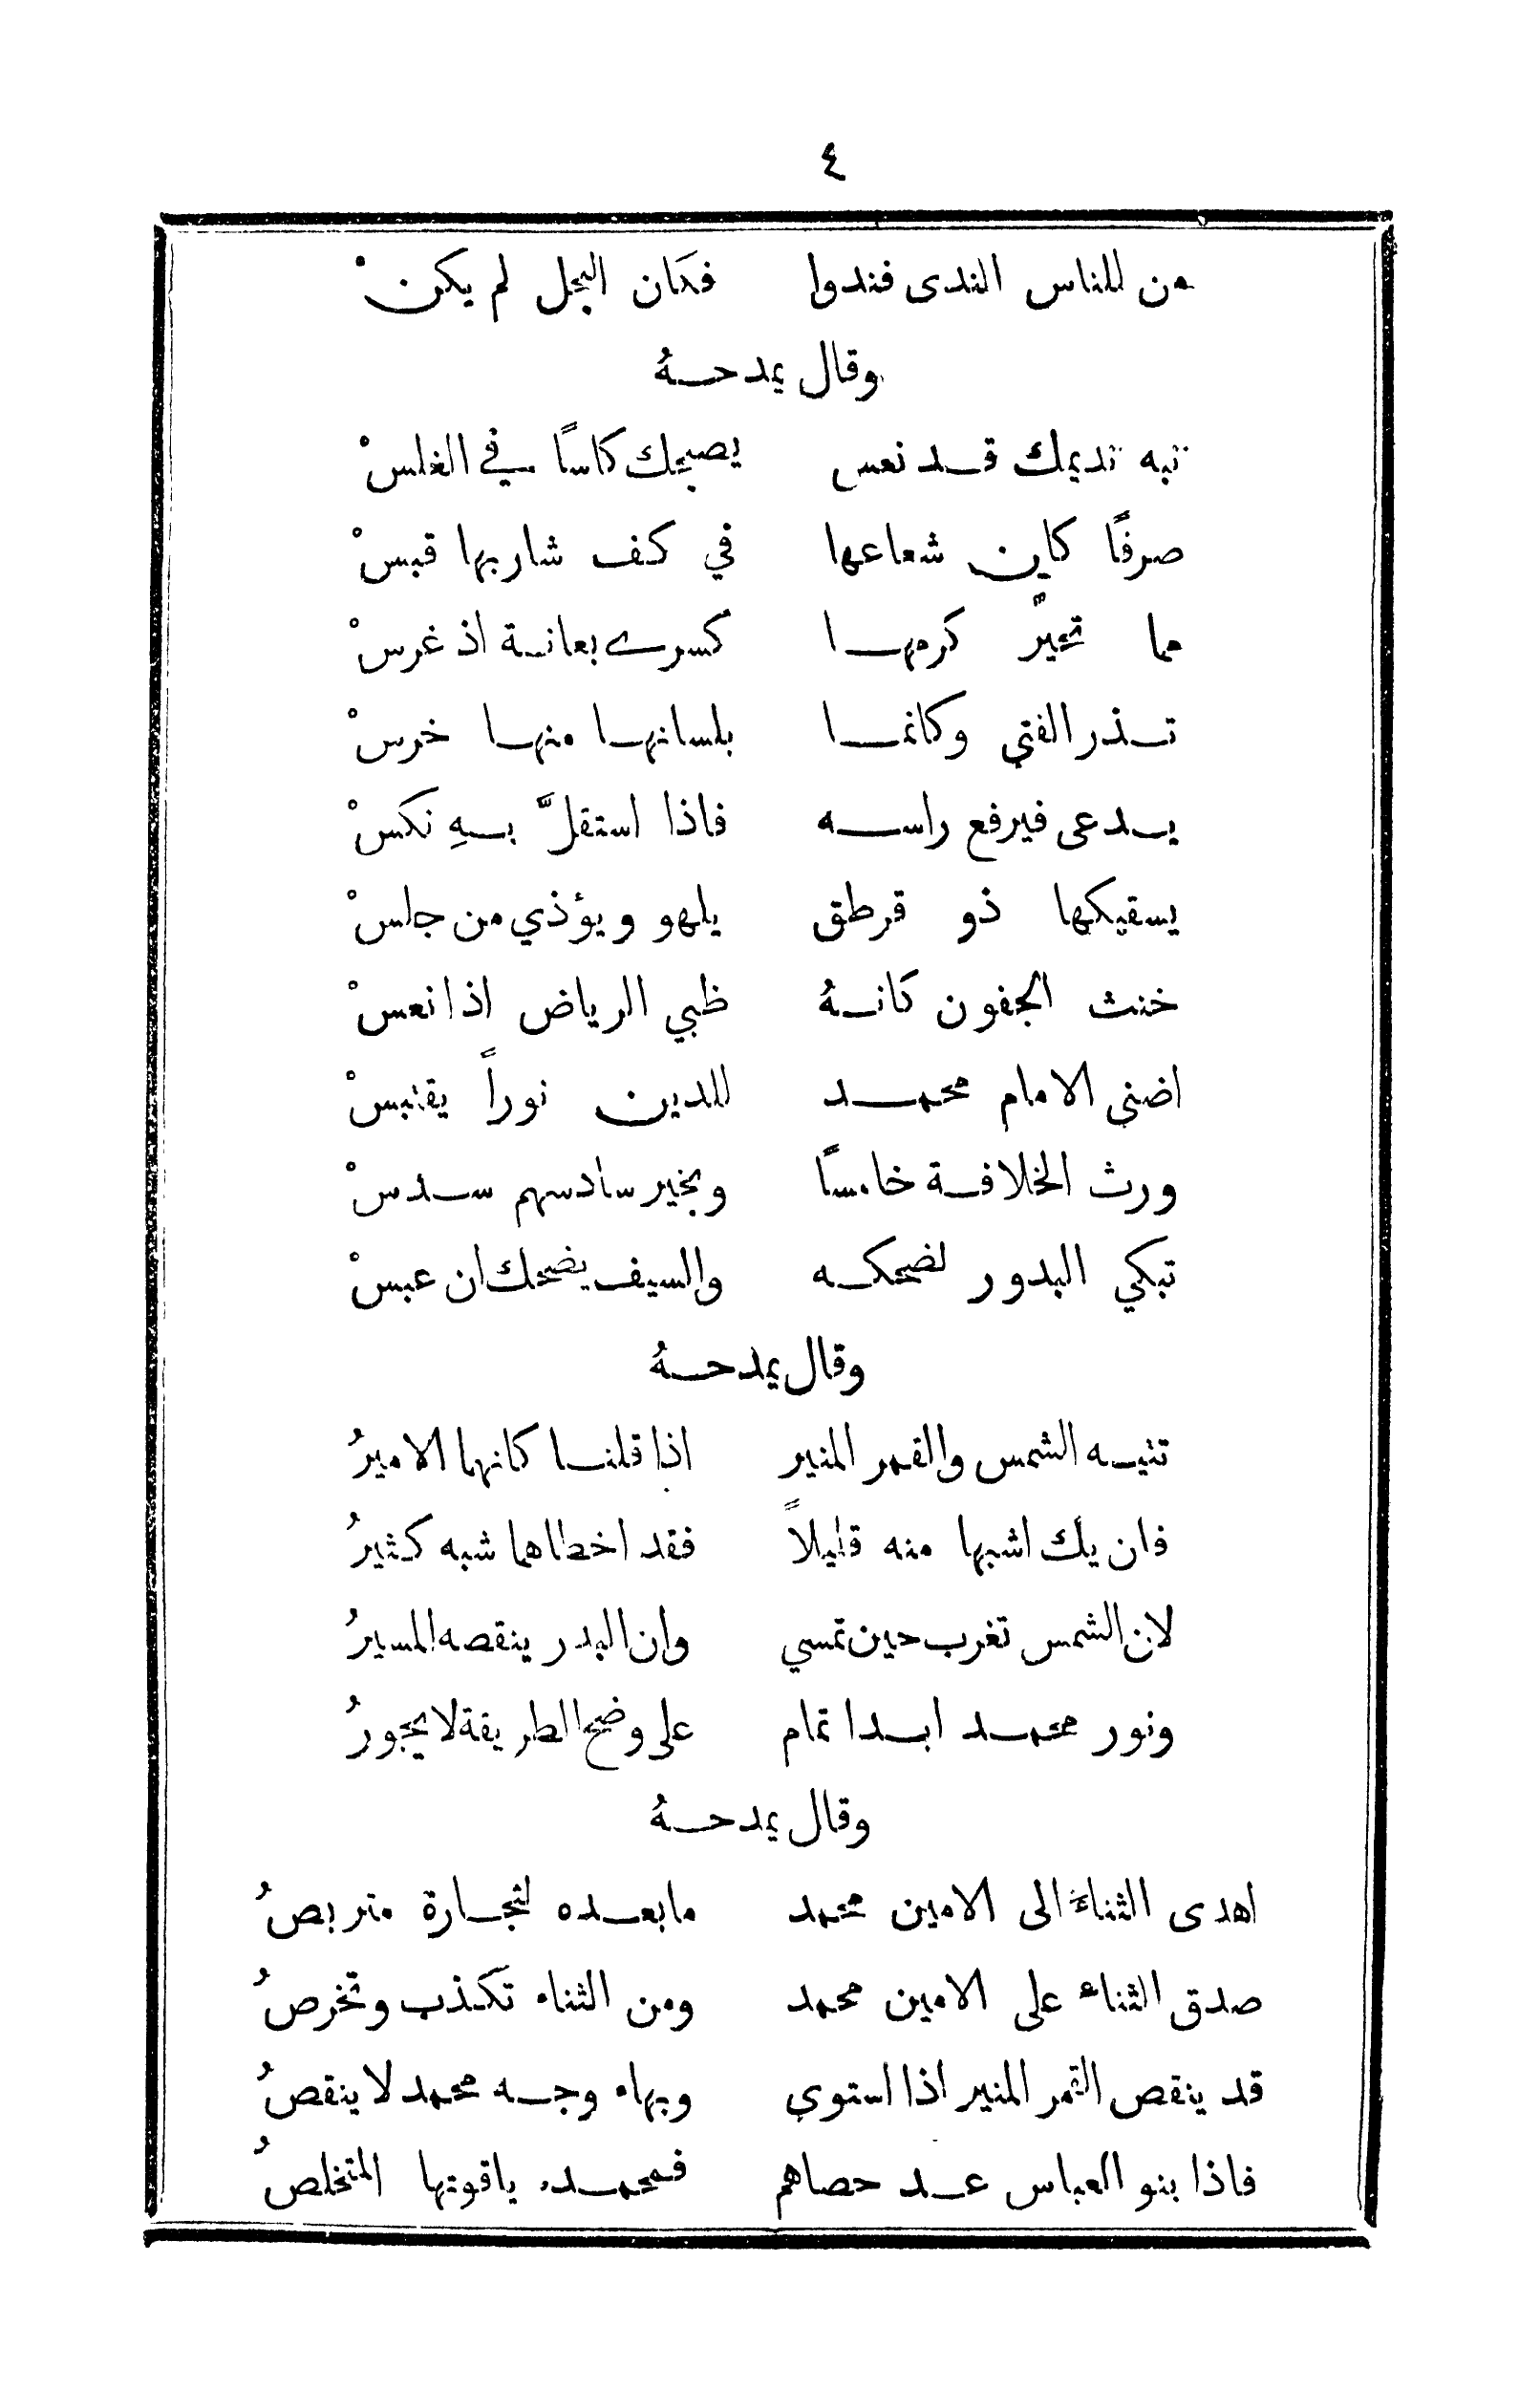 ٤
من للناس الندى فندوا فكان البخل لم يكنْ
وقال يمدحهُ
نبه نديمك قد نعس يصبحك كاسًا في الغلسْ
صرفًا كاين شعاعها في كف شاربها قبسْ
مما تخيرَّ كرمها كسرى بعانة اذ غرسْ
تذر الفتى وكانما بلسانها منها خرسْ
يدعى فيرفع راسه فاذا استقلَّ بهِ نكسْ
يسقيكها ذو قرطق يلهو ويؤذي من جلسْ
خنث الجفون كانهُ ظبي الرياض اذا نعسْ
اضنى الامام محمد للدين نوراً يقتبسْ
ورث الخلافة خامسًا وبخير سادسهم سدسْ
تبكي البدور لضحكه والسيف يضحك ان عبسْ
وقال يمدحهُ
تتيه الشمس والقمر المنير اذا قلنا كانهما الاميرُ
فان يك اشبها منه قليلاً فقد اخطاهما شبه كثيرُ
لان الشمس تغرب حين تمسي وان البدر ينقصه المسيرُ
ونور محمد ابدا تمام على وضح الطريقة لا يجورُ
وقال يمدحهُ
اهدى الثناء الى الامين محمد ما بعده لتجارة متربصُ
صدق الثناء على الامين محمد ومن الثناء تكذب وتخرصُ
قد ينقص القمر المنير اذا استوى وبهاء وجه محمد لا ينقصُ
فاذا بنو العباس عد حصاهم فمحمد ياقوتها المتخلصُ